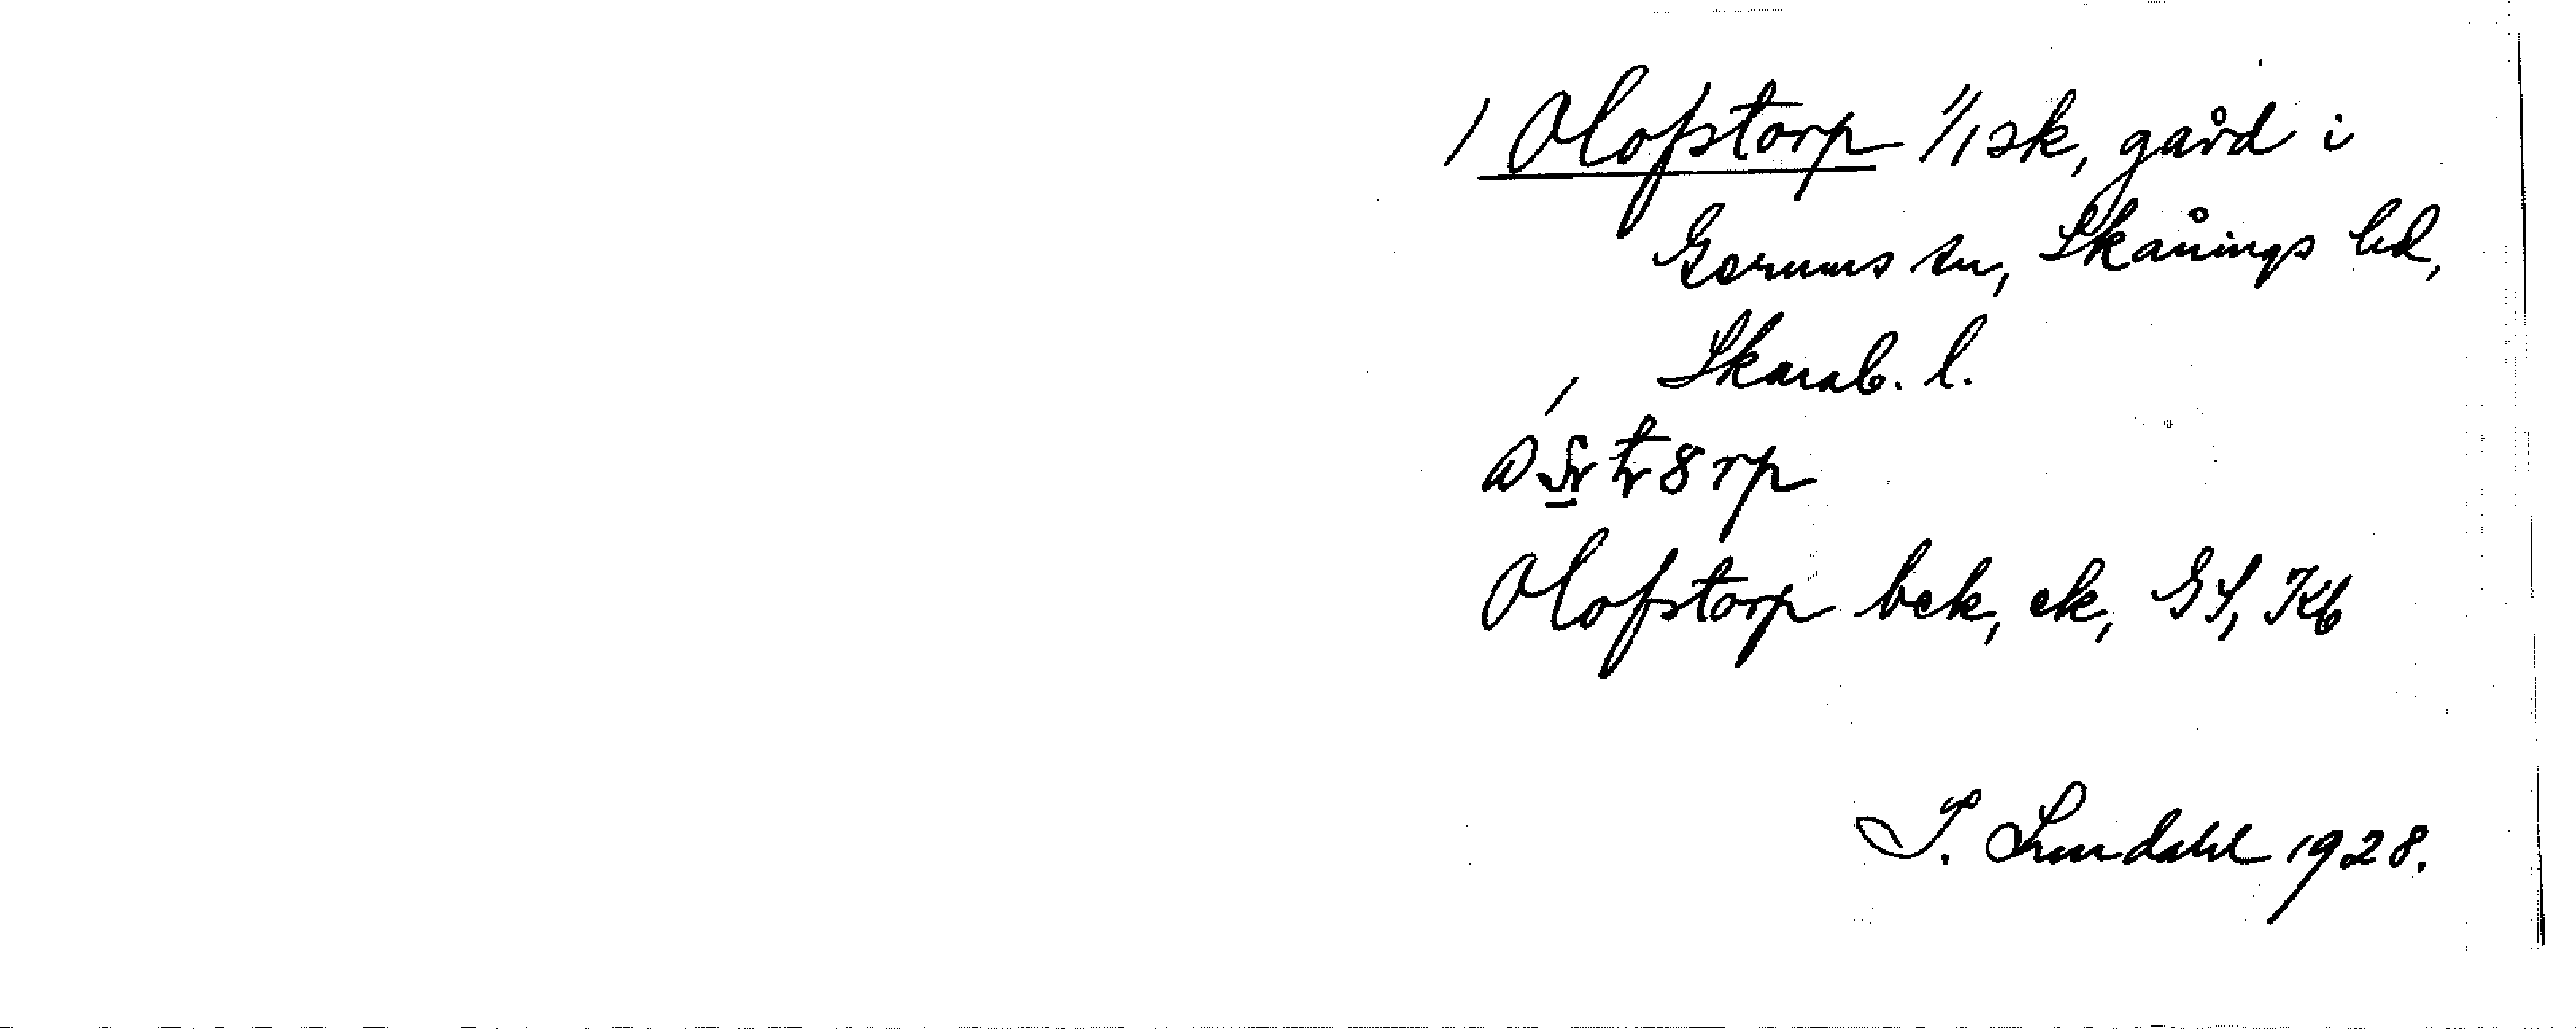 / Olofstorp 1/1 sk, gård i
Gerums sn, Skånings hd,
Skarab. l.
Olofstorp bek, ek, GS, Kb
I. Lundahl 1928.